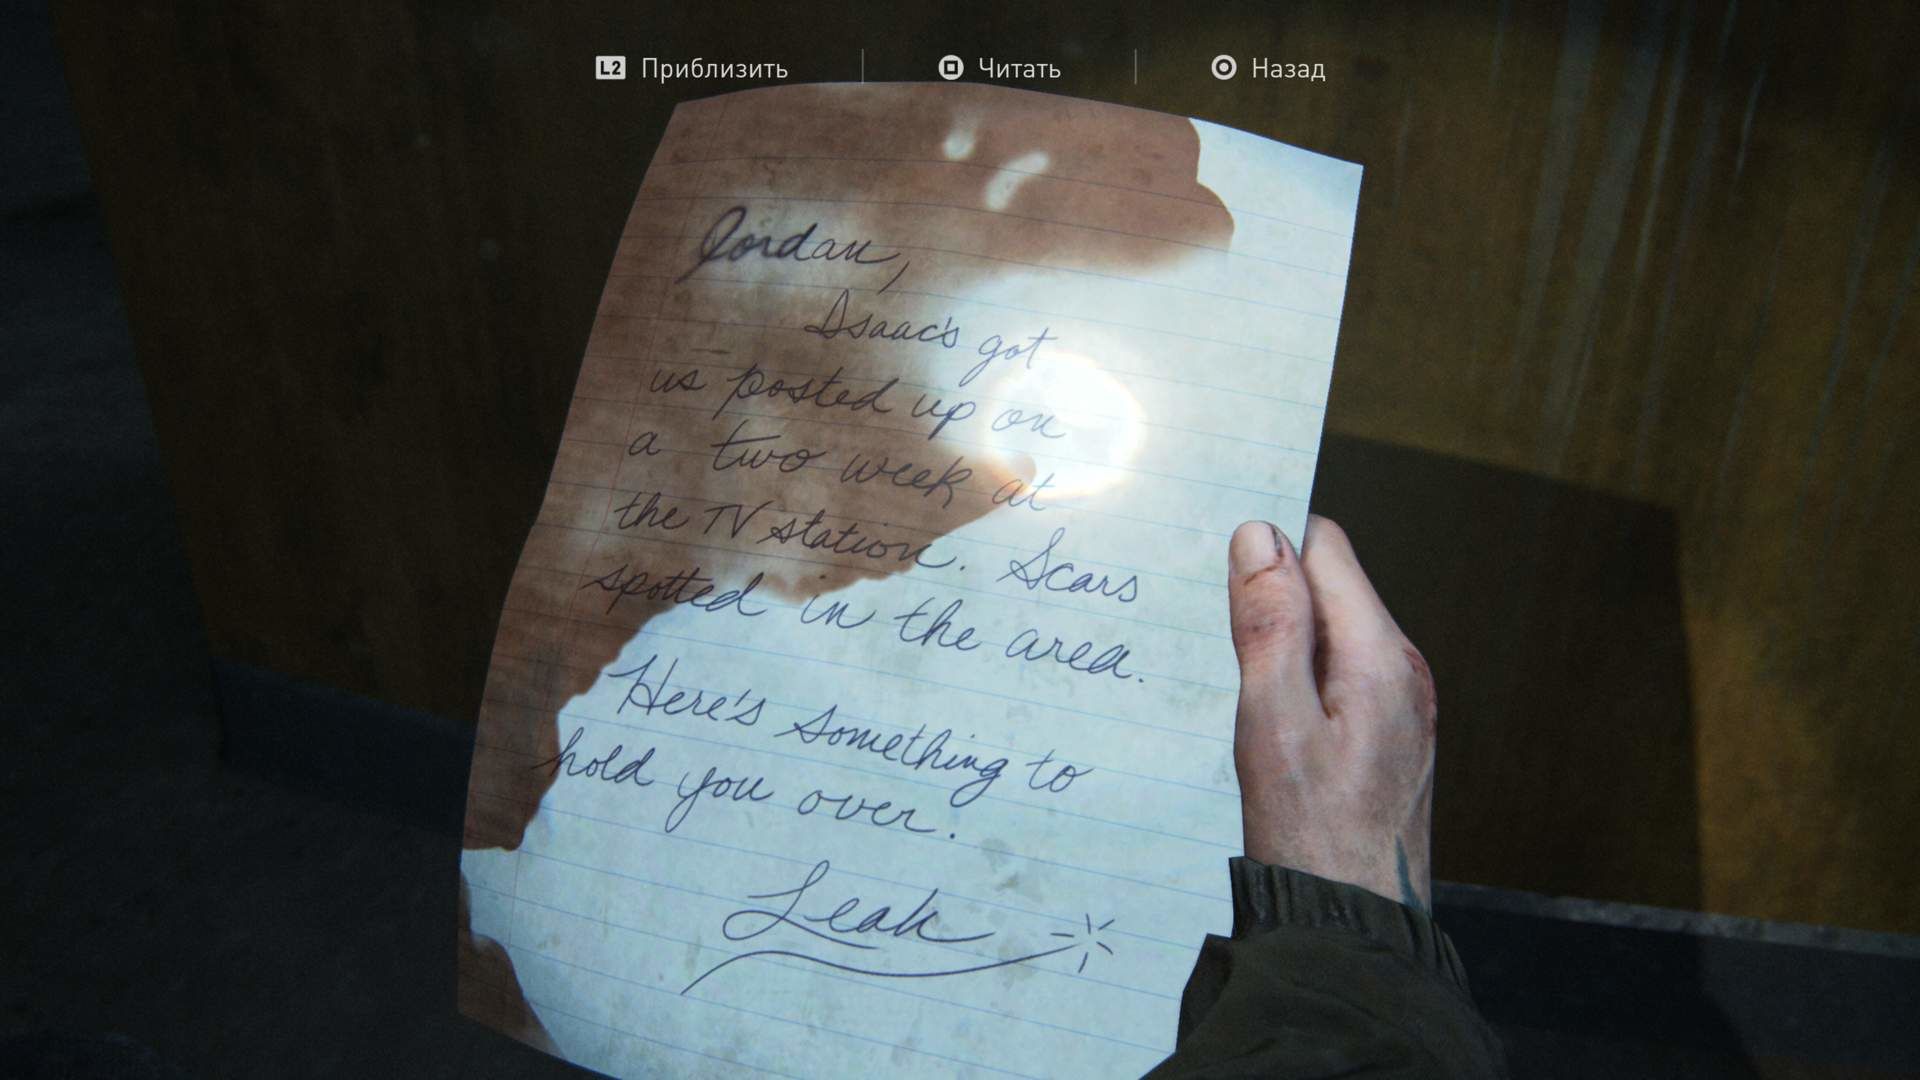 L2 Приблизить Читать Назад
Jordan,
Isaac's got
us posted up on
a two week at
the TV station. Scars
spotted in the area.
Here's something to
hold you over.
Leah